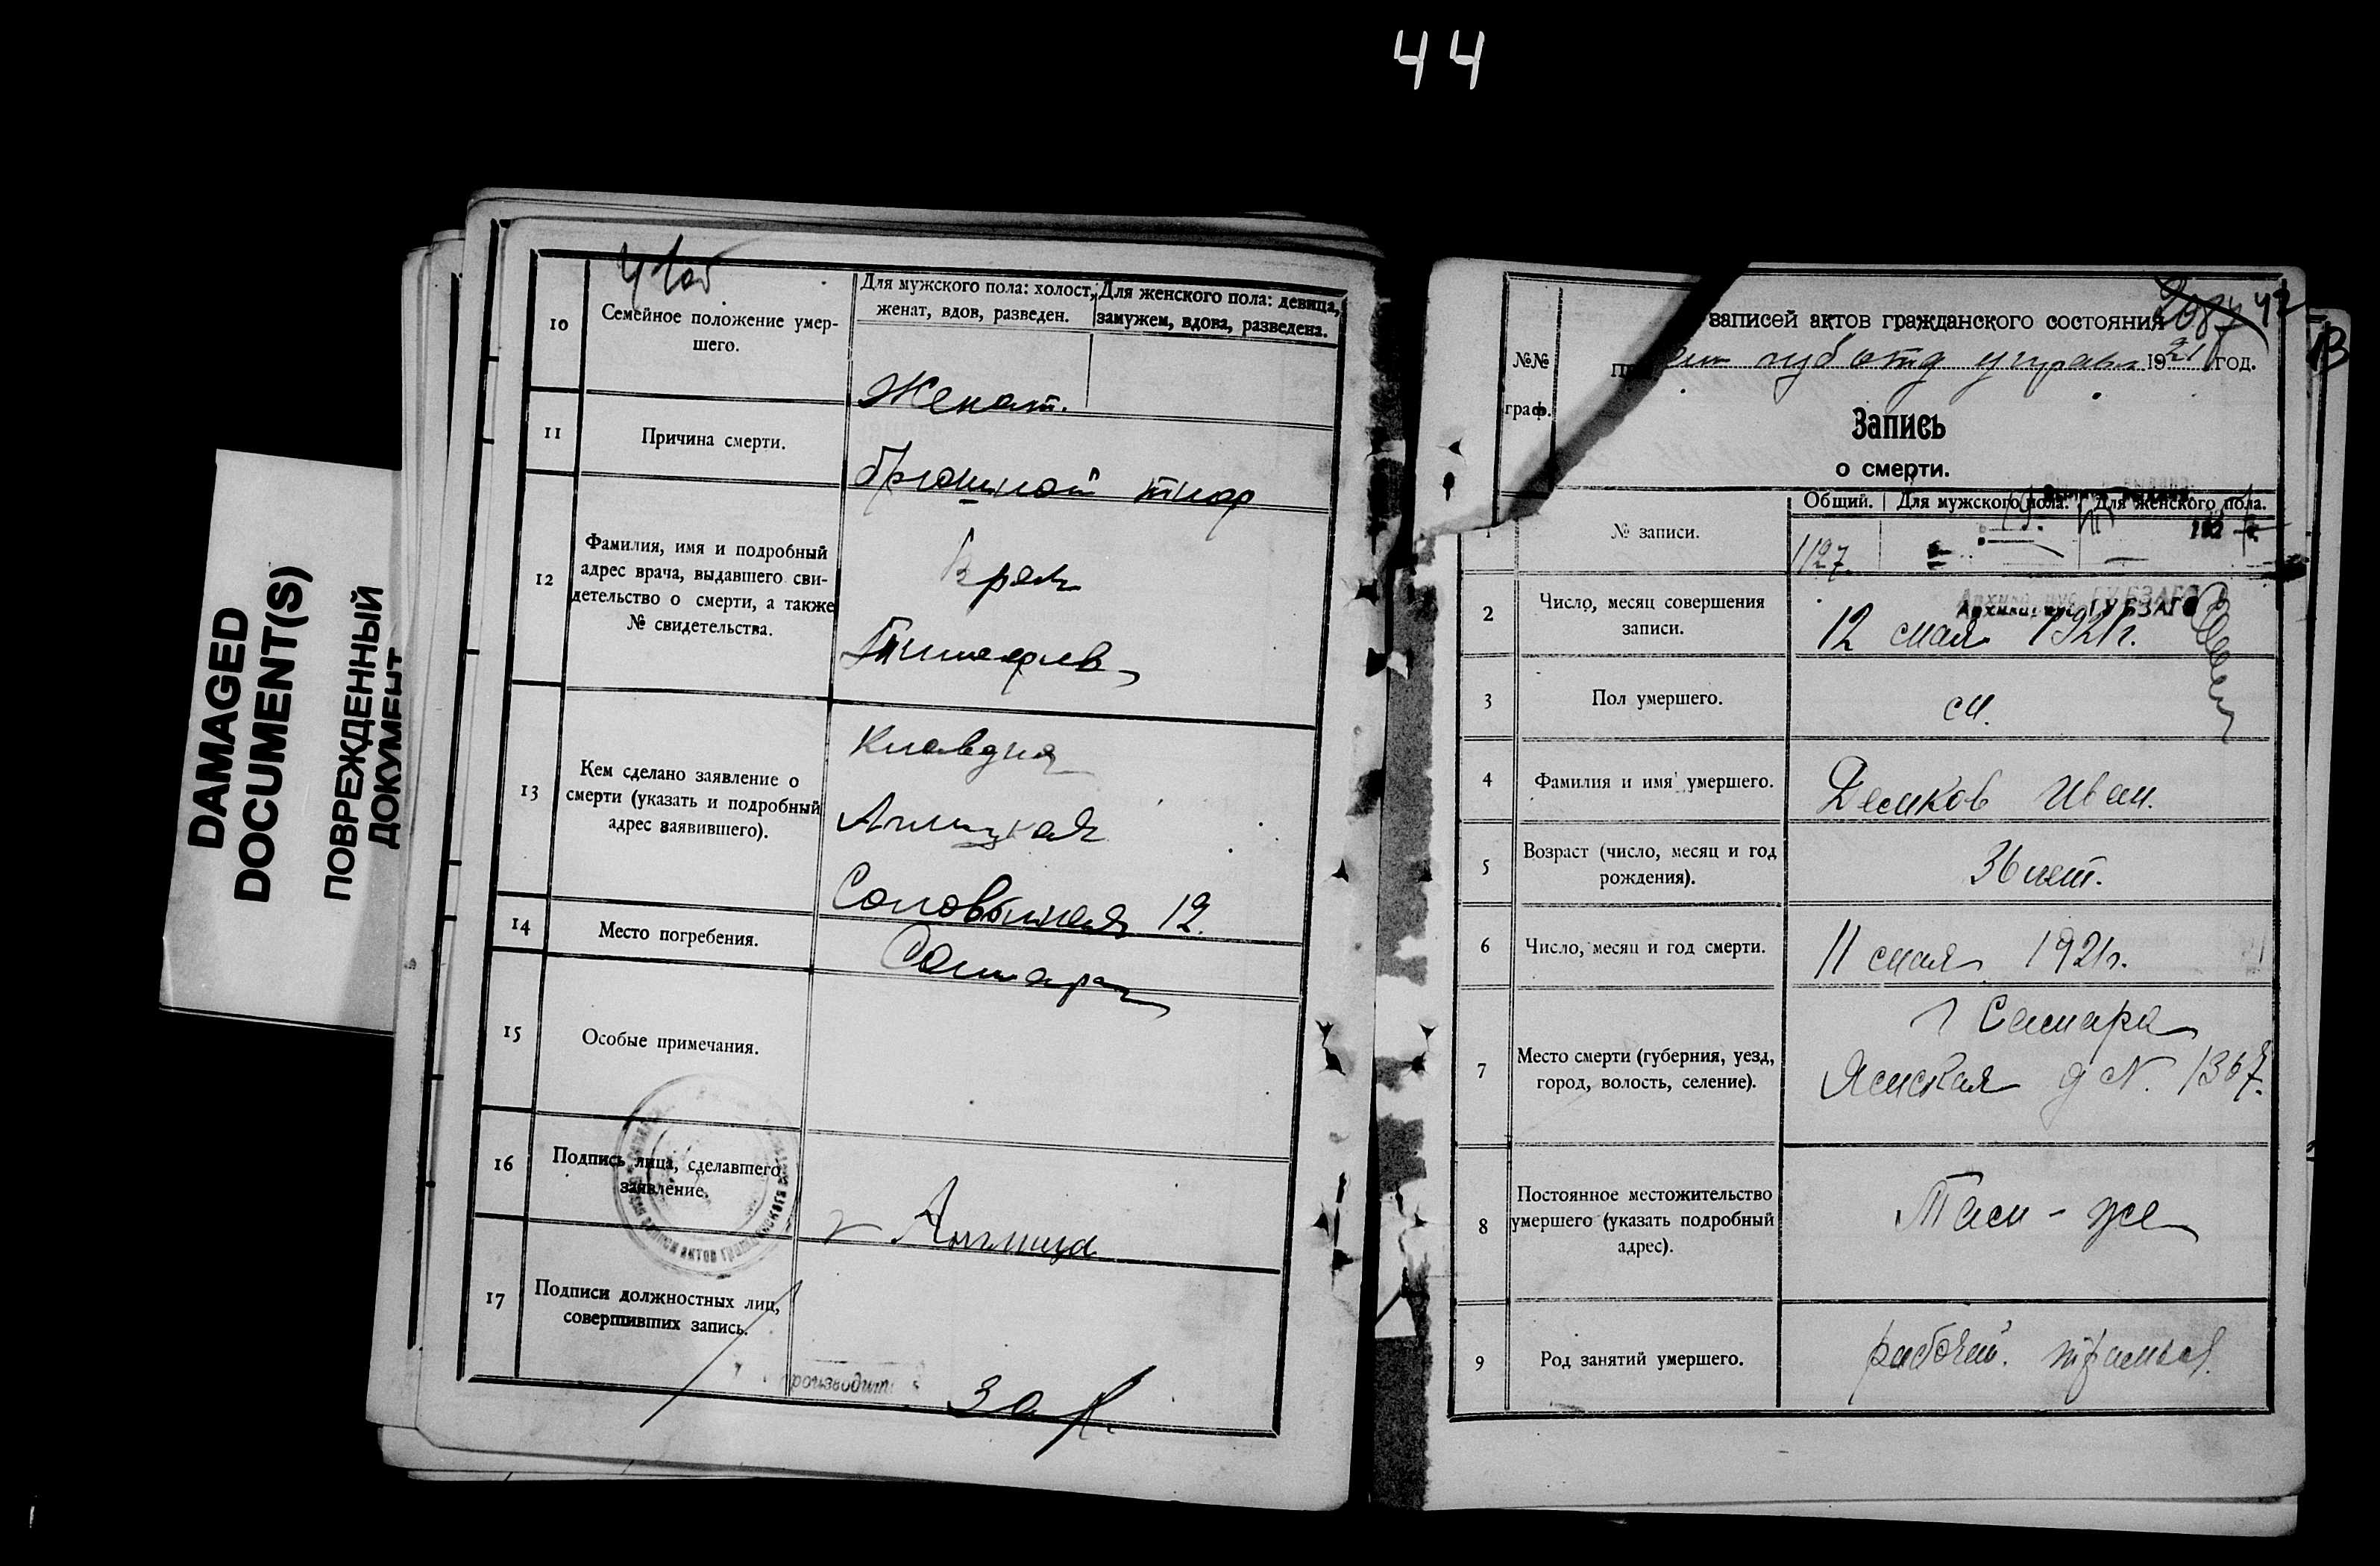 44
DAMAGED
DOCUMENT(S)
ПОВРЕЖДЕННЫЙ
ДОКУМЕНТ
10
Семейное положение умер-
шего.
Для мужского пола: холост,
женат, вдов, разведен.
Для женского пола: девица,
замужем, вдова, разведена.
Женат.
11
Причина смерти.
брюшной тиф
12
Фамилия, имя и подробный
адрес врача, выдавшего сви-
детельство о смерти, а также
№ свидетельства.
Врач
13
Кем сделано заявление о
смерти (указать и подробный
адрес заявившего).
Клавдия
12.
14
Место погребения.
Самара
15
Особые примечания.
16
Подпись лица, сделавшего
заявление.
17
Подписи должностных лиц,
совершивших запись.
№№
граф.
записей актов гражданского состояния
губ отд управл 1921 год.
Запись
о смерти.
Общий.
Для мужского пола.
Для женского пола.
1
№ записи.
1127.
2
Число, месяц совершения
записи.
ГУБЗАГС
12 мая 1921 г.
3
Пол умершего.
м.
4
Фамилия и имя умершего.
Демков Иван.
5
Возраст (число, месяц и год
рождения).
36 лет.
6
Число, месяц и год смерти.
11 мая 1921 г.
7
Место смерти (губерния, уезд,
город, волость, селение).
г Самара
Ямская д N. 136
8
Постоянное местожительство
умершего (указать подробный
адрес).
Там - же
9
Род занятий умершего.
рабочий. трамвая.